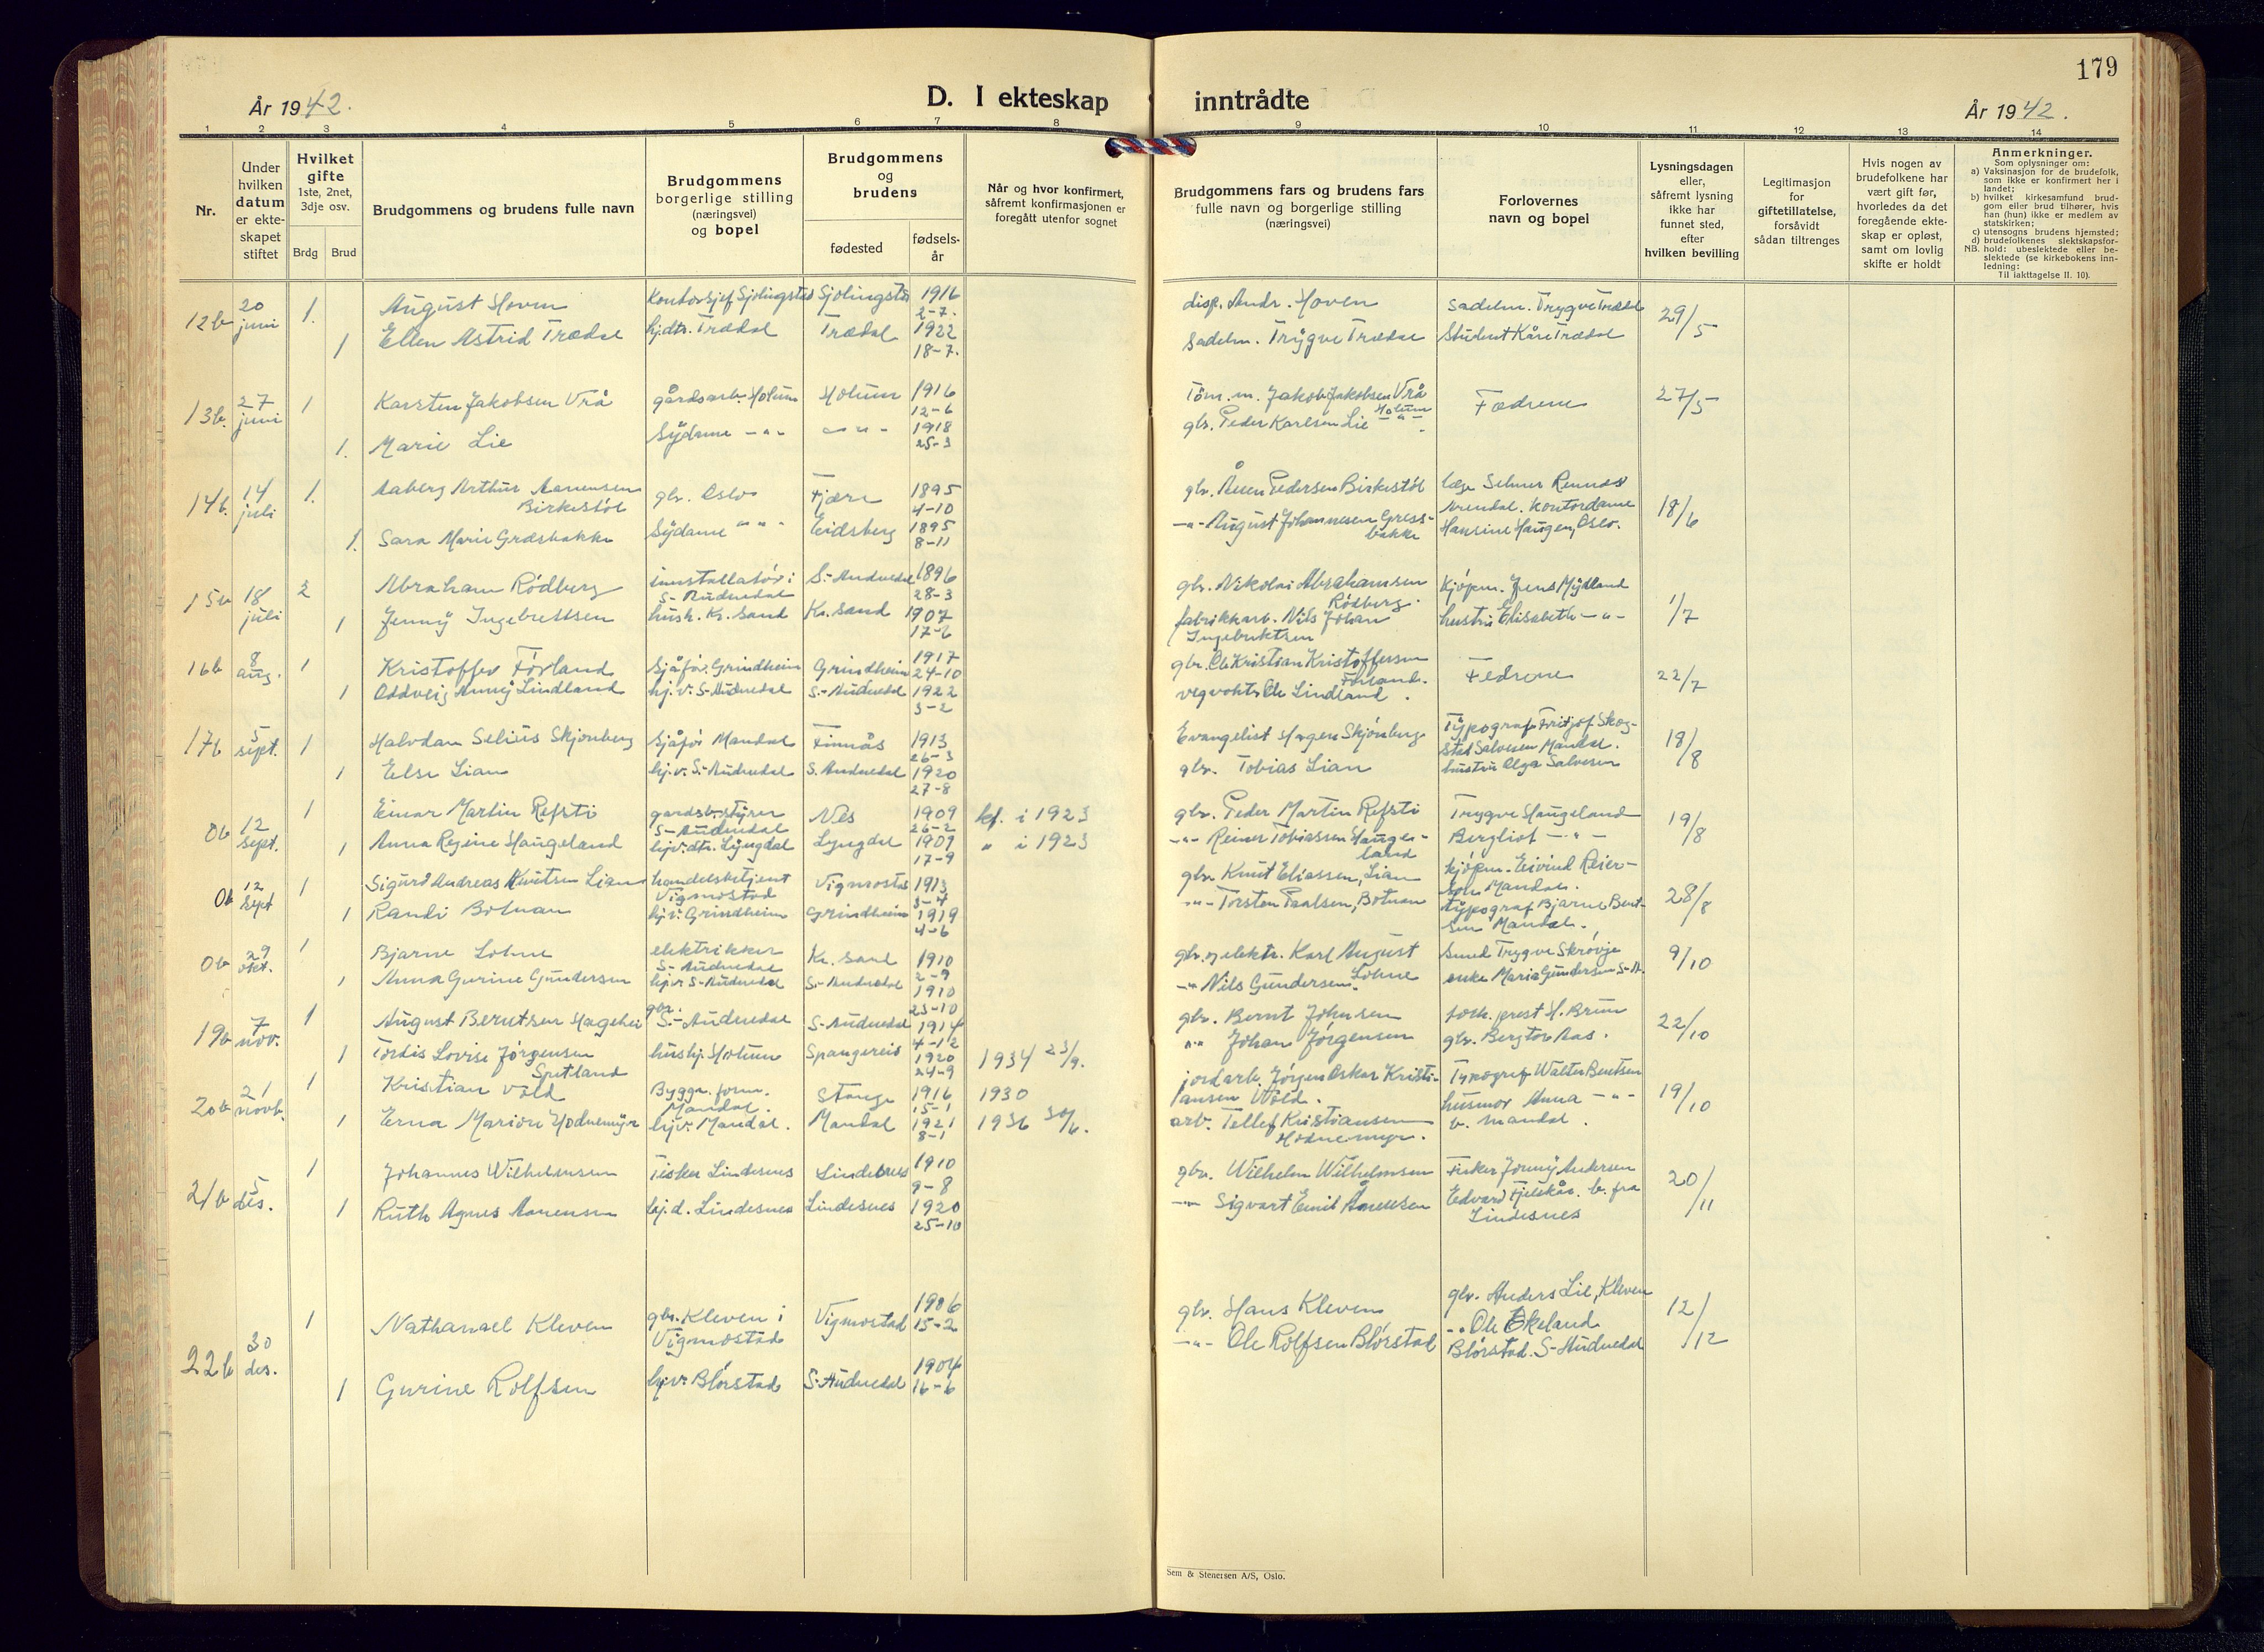 179
År 1942.
D. I ekteskap inntrådte
År 1942.
1 2 3 4 5 6 7 8 9 10 11 12 13 14
Nr.
Under
hvilken
datum
er ekte-
skapet
stiftet
Hvilket
gifte
1ste, 2net,
3dje osv.
Brdg Brud
Brudgommens og brudens fulle navn
Brudgommens
borgerlige stilling
(næringsvei)
og bopel
Brudgommens
og
brudens
fødested
fødsels-
år
Når og hvor konfirmert,
såfremt konfirmasjonen er
foregått utenfor sognet
Brudgommens fars og brudens fars
fulle navn og borgerlige stilling
(næringsvei)
Forlovernes
navn og bopel
Lysningsdagen
eller,
såfremt lysning
ikke har
funnet sted,
efter
hvilken bevilling
Legitimasjon
for
giftetillatelse,
forsåvidt
sådan tiltrenges
Hvis nogen av
brudefolkene har
vært gift før,
hvorledes da det
foregående ekte-
skap er opløst,
samt om lovlig
skifte er holdt
Anmerkninger.
Som oplysninger om:
a) Vaksinasjon for de brudefolk,
som ikke er konfirmert her i
landet;
b) hvilket kirkesamfund brud-
gom eller brud tilhører, hvis
han (hun) ikke er medlem av
statskirken;
c) utensogns brudens hjemsted;
d) brudefolkenes slektskapsfor-
NB. hold: ubeslektede eller be-
slektede (se kirkebokens inn-
ledning:
Til iakttagelse II. 10).
12b 20 juni 1. August Hoven Kontorsjef Sjölingstad Sjölingsta 1916 2-7. disp. Andr. Hoven Sadelm. Trygve Trædal 29/5
1 Ellen Astrid Trædal hj.dtr. Trædal Trædal 1922 18-7. Sadelm. Trygve Trædal Student Kåre Trædal
13b. 27 juni 1 Karsten Jakobsen Vrå gårdsarb. Holum Holum 1916 12-6 Töm.m. Jakob Jakobsen Vrå Holum Fædrene 27/5
1. Marie Lie Sydame -"- -"- 1918 25-3 gbr. Peder Karlsen Lie -"-
14b. 14 juli 1. Aaberg Arthur Aanensen Birkestöl gbr. Oslo Fjære 1895 4-10 gbr. Ånen Pedersen Birkestöl læge Selmer Rennes Arendal. Kontordame 18/6
1. Sara Marie Græsbakke Sydame -"- Eidsberg 1895 8-11 -"- August Johannesen Gress-bakke Hansine Haugen, Oslo.
15b 18 juli 2 Abraham Rödberg innstallatör i S-Audnedal S.-Audnedal 1896 28-3 gbr. Nikolai Abrahamsen Rödberg. Kjöpm. Jens Mydland 1/7
1 Jenny Ingebrettsen hush. Kr. Sand Kr. Sand 1907 17-6 fabrikkarb. Nils Johan Ingebrektsen hustru Elisabeth -"-
16b 8 aug. 1 Kristoffer Förland Sjåför. Grindheim Grindheim 1917 24-10 gbr. Ole Kristian Kristoffersen Förland. Fedrene 22/7
1 Oddveig Anny Lindland hj.v. S-Audnedal S.-Audnedal 1922 3-2 vegvokter Ole Lindland.
17b 5 sept. 1 Halvdan Selius Skjönberg Sjåför Mandal Finnås 1913 26-3 Evangelist Hagen Skjönberg Typograf Fritjof Skog-stad Salvesen Mandal. 18/8
1 Else Lian hj.v. S.-Audnedal S. Audnedal 1920 27-8 gbr. Tobias Lian hustru Olga Salvesen
0b 12 sept. 1 Einar Martin Refsti gardsbestyrer S-Audnedal Nes 1909 26-2 kf. i 1923 gbr. Peder Martin Refsti Trygve Haugeland 19/8
1 Anna Regine Haugeland hj.v.dtr. Lyngdal Lyngdal 1909 17-9 " i 1923 -"- Reiner Tobiassen Hauge-land Bergliot -"-
0b 12 sept 1 Sigurd Andreas Knutsen Lian handelsbetjent Vigmostad Vigmostad 1913 3-4 gbr. Knut Eliassen, Lian kjöpm. Eivind Reier-sen Mandal. 28/8
1 Randi Botnan hj.v. Grindheim Grindheim 1919 4-6 -"- Torsten Paalsen, Botnan typograf Bjarne Bent-sen Mandal.
0b 29 okt. 1 Bjarne Lohne elektriker S-Audnedal Kr. Sand 1910 2-9 gbr. og elektr. Karl August Lohne Smed Trygve Skrövje 9/10
1 Anna Gurine Gundersen hj.v. S-Audnedal S.-Audnedal 1910 23-10 -"- Nils Gundersen. enke Maria Gundersen S-A.
19b 7 nov. 1 August Berntsen Hagehei gbr. S.-Audnedal S-Audnedal 1914 4-12 gbr. Bernt Johnsen sokn.prest H. Bruun 22/10
1 Tordis Lovise Jörgensen Spetland hushj. Holum Spangereid 1920 24-9 1934 23/9. "" Johan Jörgensen gbr. Bergtor Aas.
20b 21 novb. 1 Kristian Vold Byggn. form. Mandal. Stange 1916 15-1 1930 jordarb. Jörgen Oskar Kristi-ansen Vold. Typograf Walter Bentsen 19/10
1 Erna Marion Hodnemyr hj.v. Mandal. Mandal 1921 8-1 1936 30/6. arb. Tellef Kristiansen Hodnemyr. husmor Anna -"- b. Mandal.
21b 5 des. 1 Johannes Wilhelmsen Fisker Lindesnes Lindesnes 1910 9-8 gbr. Wilhelm Wilhelmsen Fisker Jonny Andersen 20/11
1 Ruth Agnes Aanensen hj.d. Lindesnes Lindesnes 1920 25-10 -"- Sigvart Emil Ånensen Edvard Fjeldskår. b. fra Lindesnes
22b 30 des. 1 Nathanael Kleven gbr. Kleven i Vigmostad Vigmostad 1906 15-2 gbr. Hans Kleven gbr. Anders Lie, Kleven 12/12
1 Gurine Rolfsen hj.v. Blörstad S-Audnedal 1904 16-6 -"- Ole Rolfsen Blörstad -"- Ole Ökeland Blörstad. S-Audnedal
Sem & Stenersen A/S, Oslo.